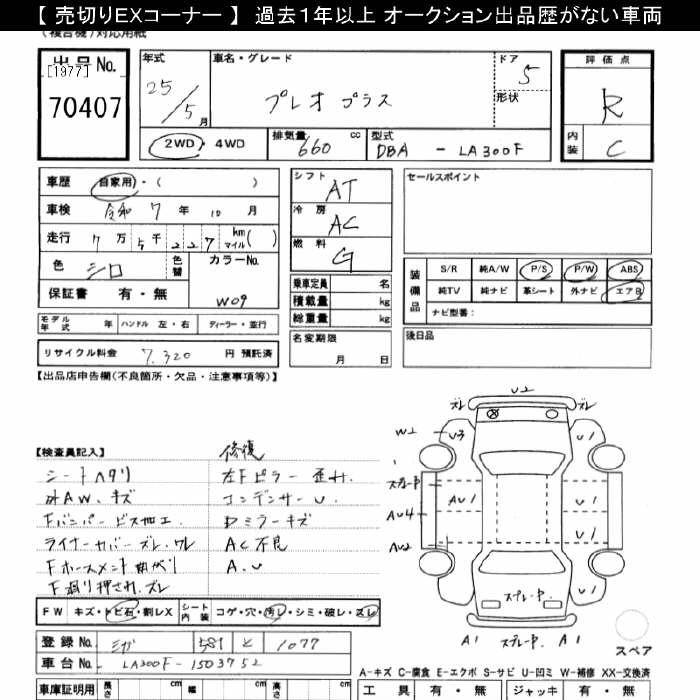 【 売切りEXコーナー 】 過去1年以上 オークション出品歴がない車両
(複合機)対応用紙
出品No.
[1977]
70407
年式
25/5月
車名・グレード
プレオ プラス
ドア
5
形状
評価点
R
内装
C
2WD・4WD
排気量
660 cc
型式
DBA - LA300F
車歴 自家用・( )
車検 令和 7 年 10 月
走行 7万5千227 km マイル( )
色 シロ
色替
カラーNo.
W09
保証書 有・無
シフト
AT
冷房
AC
燃料
G
乗車定員 名
積載量 kg
総重量 kg
セールスポイント
装備品
S/R 純A/W P/S P/W ABS
純TV 純ナビ 革シート 外ナビ エアB
ナビ型番:
モデル年式 年 ハンドル 左・右 ディーラー・並行
リサイクル料金 7,320 円 預託済
名変期限
月 日
後日品
【出品店申告欄(不良箇所・欠品・注意事項等)】
【検査員記入】
修復
シートヘタリ
左Fピラー歪ミ.
外AW.キズ
コンデンサーU.
Fバンパービス加工.
Dミラーキズ
ライナーカバーズレ,ワレ
AC不良
Fホースメント曲がり
A.U
F廻り押され.ズレ
U2
ズレ
ズレ
W2
U3
U1
スプレー中
AU1
U1
AU4
U1
AU2
スプレー中
U1
A1
スプレー中
A1
スペア
FW キズ・トビ石・割レX
シート内装 コゲ・穴・汚レ・シミ・破レ・スレ
登録No. 581 と 1077
車台No. LA300F-1503752
A-キズ C-腐食 E-エクボ S-サビ U-凹ミ W-補修 XX-交換済
車庫証明用 長さ cm 幅 cm 高さ cm
工具 有・無 ジャッキ 有・無